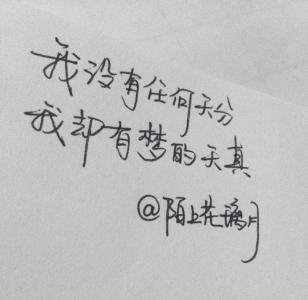 我没有任何天分
我却有梦的天真
@陌上花璃月